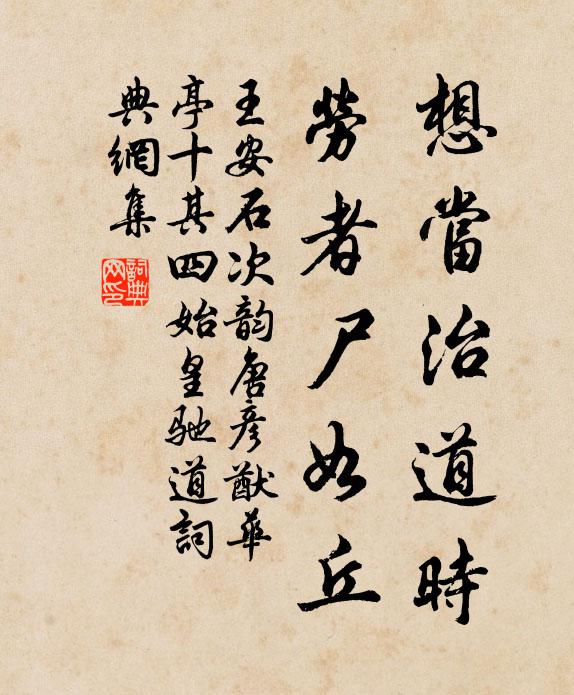 想當治道時
勞者尸如丘
王安石次韵唐彦猷華
亭十其四始皇馳道詞
典網集
詞典網印